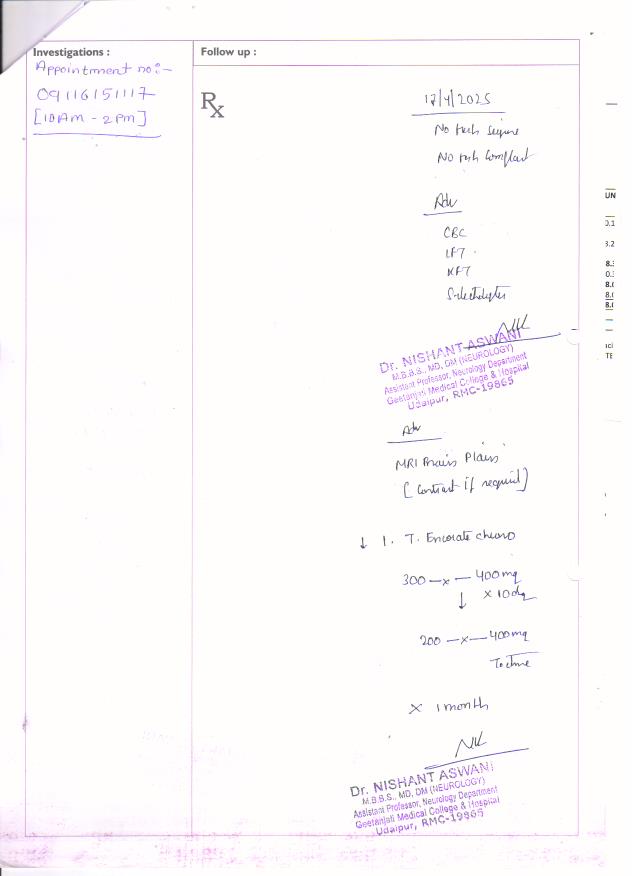 Investigations :
Appointment no:-
09116151117
[10AM - 2PM]
Follow up :
Rx
17/4/2025
No fresh seizure
No fresh complaint
Adv
CBC
LFT
KFT
S. electrolytes
NK
Dr. NISHANT ASWANI
M.B.B.S., MD, DM (NEUROLOGY)
Assistant Professor, Neurology Department
Geetanjali Medical College & Hospital
Udaipur, RMC-19865
Adv
MRI Brain Plain
[Contrast if required]
↓ 1. T. Encorate chrono
300 — x — 400mg
↓ x 10 day
200 — x — 400mg
To continue
x 1 month
NK
Dr. NISHANT ASWANI
M.B.B.S., MD, DM (NEUROLOGY)
Assistant Professor, Neurology Department
Geetanjali Medical College & Hospital
Udaipur, RMC-19865
UN
0.1
3.2
8.0
8.0
TE